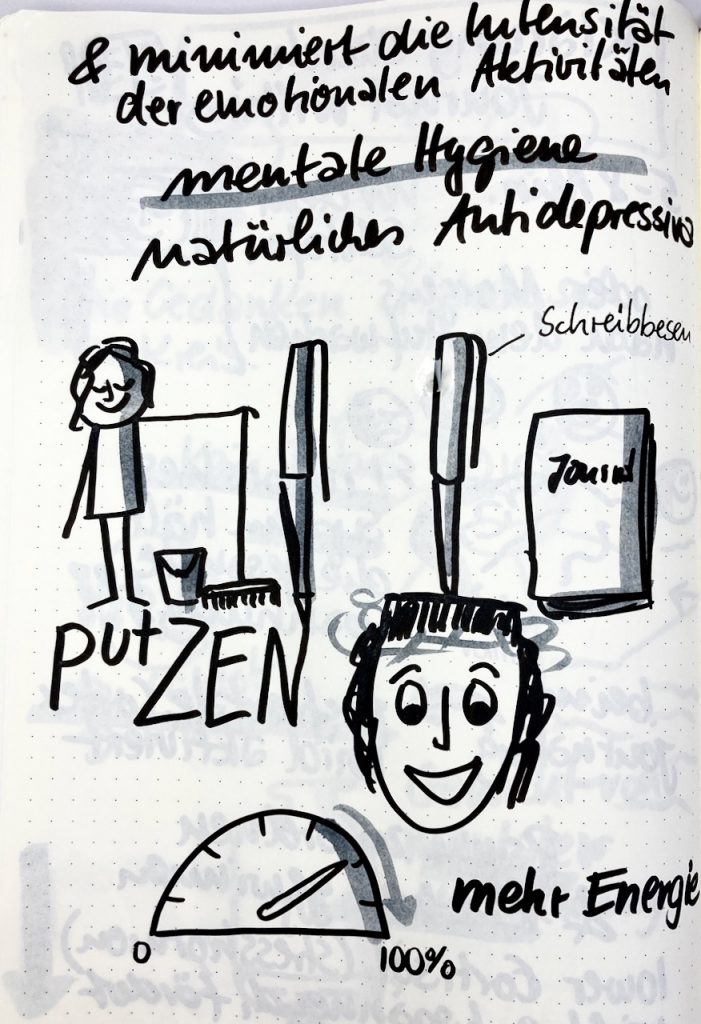 & minimiert die Intensität
der emotionalen Aktivitäten
mentale Hygiene
natürliches Antidepressiva
Schreibbesen
putZEN
0
100%
mehr Energie